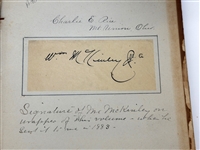 Charles E. Rice
Wm McKinley Jr
Signature of Wm McKinley on
wrapper of this volume - when he
sent it to me in 1883.